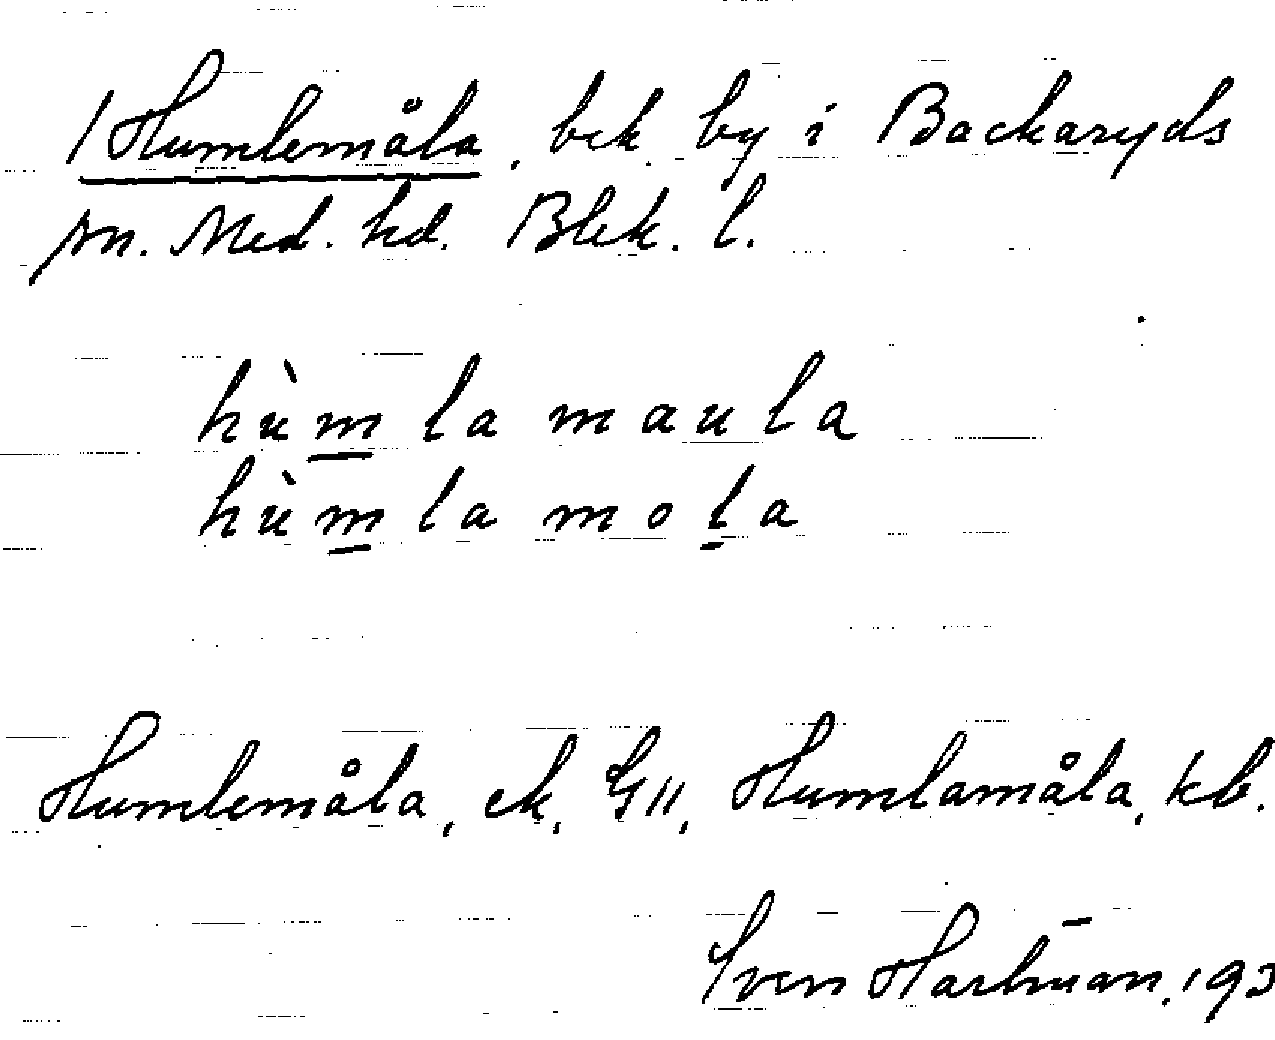 /Humlemåla, bek. by i Backaryds
sn. Med. hd. Blek. l.
hùmla maula
hùmla mola
Humlemåla, ek, G11, Humlamåla, kb.
Sven Hartman, 193